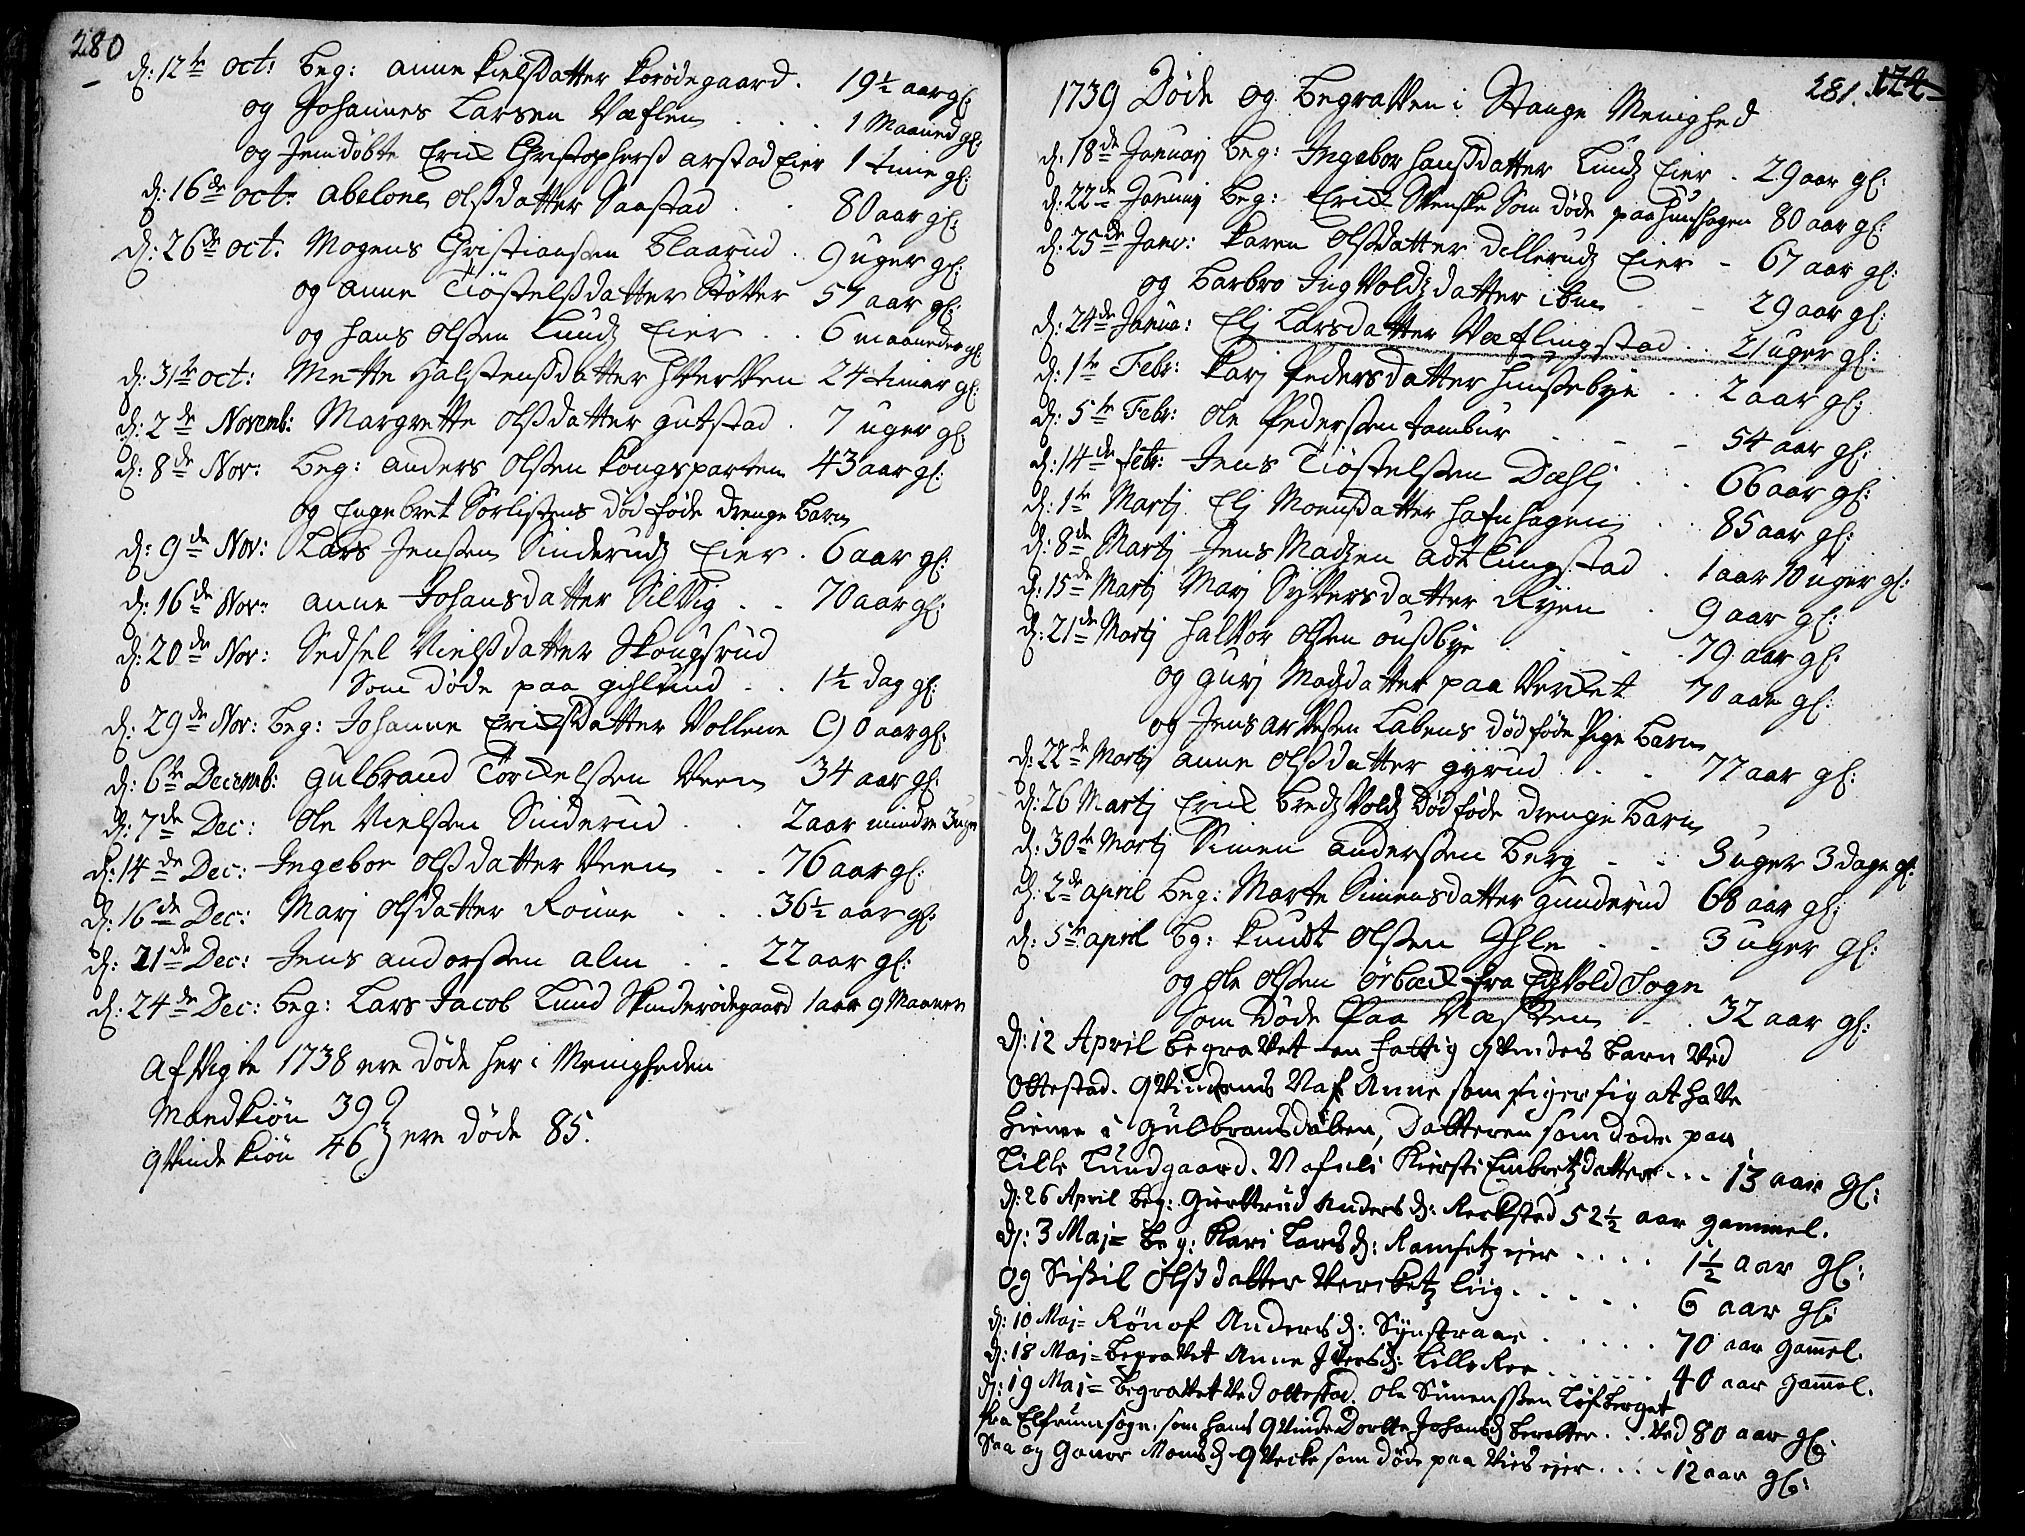 280
d: 12te oct: beg: anne kielsdatter korødegaard. 19½ aar gl:
og Johannes Larsen Væflen . . . 1 Maaned gl:
og Jemdøbte Erick Christophers arstad Eier 1 time gl:
d: 16de oct: abelone olsdatter Saastad . . 80 aar gl:
d: 26de oct: Mogens Christiansen Blaarud . 9 uger gl:
og anne Tiøstelsdatter Støtter 57 aar gl:
og hans olsen Lundz Eier . . 6 maaneder gl:
d: 31te oct: Mette Halstensdatter Hverven 24 timer gl:
d: 2de Novemb: Margrette olsdatter gutstad . 7 uger gl:
d: 8de Nov: beg: anders olsen kongsparten 43 aar gl:
og Engebret Sørlistens død føde drenge barn
d: 9de Nov: Lars Jensen Sinderudz Eier . 6 aar gl:
d: 16de Nov: anne Johansdatter Silvig . . 70 aar gl:
d: 20de Nov: Sedsel Nielsdatter Skougsrud
Som døde paa gihlund . . 1½ dag gl:
d: 29de Nov: beg: Johanne Ericksdatter Vollene 90 aar gl:
d: 6te Decemb: gulbrand Torckelsen Veen 34 aar gl:
d: 7de Dec: ole Nielsen Sinderud . . 2 aar mindre 3 uger
d: 14de Dec: Ingebor olsdatter Veen . . 76 aar gl:
d: 16de Dec: Marj olsdatter Rønne . . . 36½ aar gl:
d: 21de Dec: Jens andersen alm . . 22 aar gl:
d: 24de Dec: beg: Lars Jacob Lund Skinderødegaard 1 aar 9 Maaneder
Afvigte 1738 ere døde her i Menigheden
Mandkiøn 39
qvinde kiøn 46 } ere døde 85.
281. 174
1739 Døde og begraven i Stange Menighed
d: 18de Januarj beg: Ingebor hansdatter Lundz Eier . 29 aar gl:
d: 22de Januarj beg: Erick Svenske Som døde paa hunshagen 80 aar gl:
d: 25de Janv: karen olsdatter dillerudz Eier – 67 aar gl:
og barbro Ingvoldzdatter ibm – 29 aar gl:
d: 24de Janua: Elj Larsdatter Væflingstad . . 21 uger gl:
d: 1te Febr: karj Pedersdatter hunstebye . . 2 aar gl:
d: 5te Febr: ole Pedersen tambur . – – 54 aar gl:
d: 14de febr: Jens Tiøstelsen Dæhlj . . 66 aar gl:
d: 1te Martj Elj Moensdatter hafnhagen . . 85 aar gl:
d: 8de Martj Jens Madzen adtlungstad . 1 aar 10 uger gl:
d: 15de Martj Marj Syversdatter Ryen . 9 aar gl:
d: 21de Martj halvor olsen ousbye . . . 79 aar gl:
og gurj Madzdatter paa Vercket 70 aar gl:
og Jens arvesen Labens død føde Pige barn
d: 22de Martj anne olsdatter gyrud . . 77 aar gl:
d: 26 Martj Erick bredzvoldz Død føde drenge barn
d: 30te Martj Simen andersen berg – . 3 uger 3 dage gl:
d: 2de april beg: Marte Simensdatter gunderud 68 aar gl:
d: 5te april bg: knudt olsen Ihle – – 3 uger gl:
og ole olsen ørbæck fra Eidzvold Sogn
som døde Paa Næsten – . 32 aar gl:
d: 12 April begravet en fattig qvindes barn ved
ottestad. qvindens Nafn Anne som siger sig at have
hieme i Gulbransdalen, datteren som døde paa
Lille Lundgaard. Nafnli Kirsti Embretzdatter . . . 13 aar gl:
d: 26 April beg: Giertrud Anders d: Reckstad 52½ aar gammel.
d: 3 Maj = beg: Kari Lars d: Ramsetz eier . . . . 1½ aar gl:
og Sissil Olsdatter Verketz liig . . . . . 6 aar gl:
d: 10 Maj = Rønof Anders d: Synstraae . . . . . 70 aar gammel.
d: 18 Maj = begravet Anne Ivers d: LilleRoe . . . . . . 40 aar gammel.
d: 19 Maj = begravet ved ottestad ole Simenssen Løfberget
fra Elfrum sogn som hans qvinde Dorthe Johansd beretter . . . ved 80 aar gl:
Saa og Gunor Monsd: qvecke som døde paa Vies eier . . . . 12 aar gl: